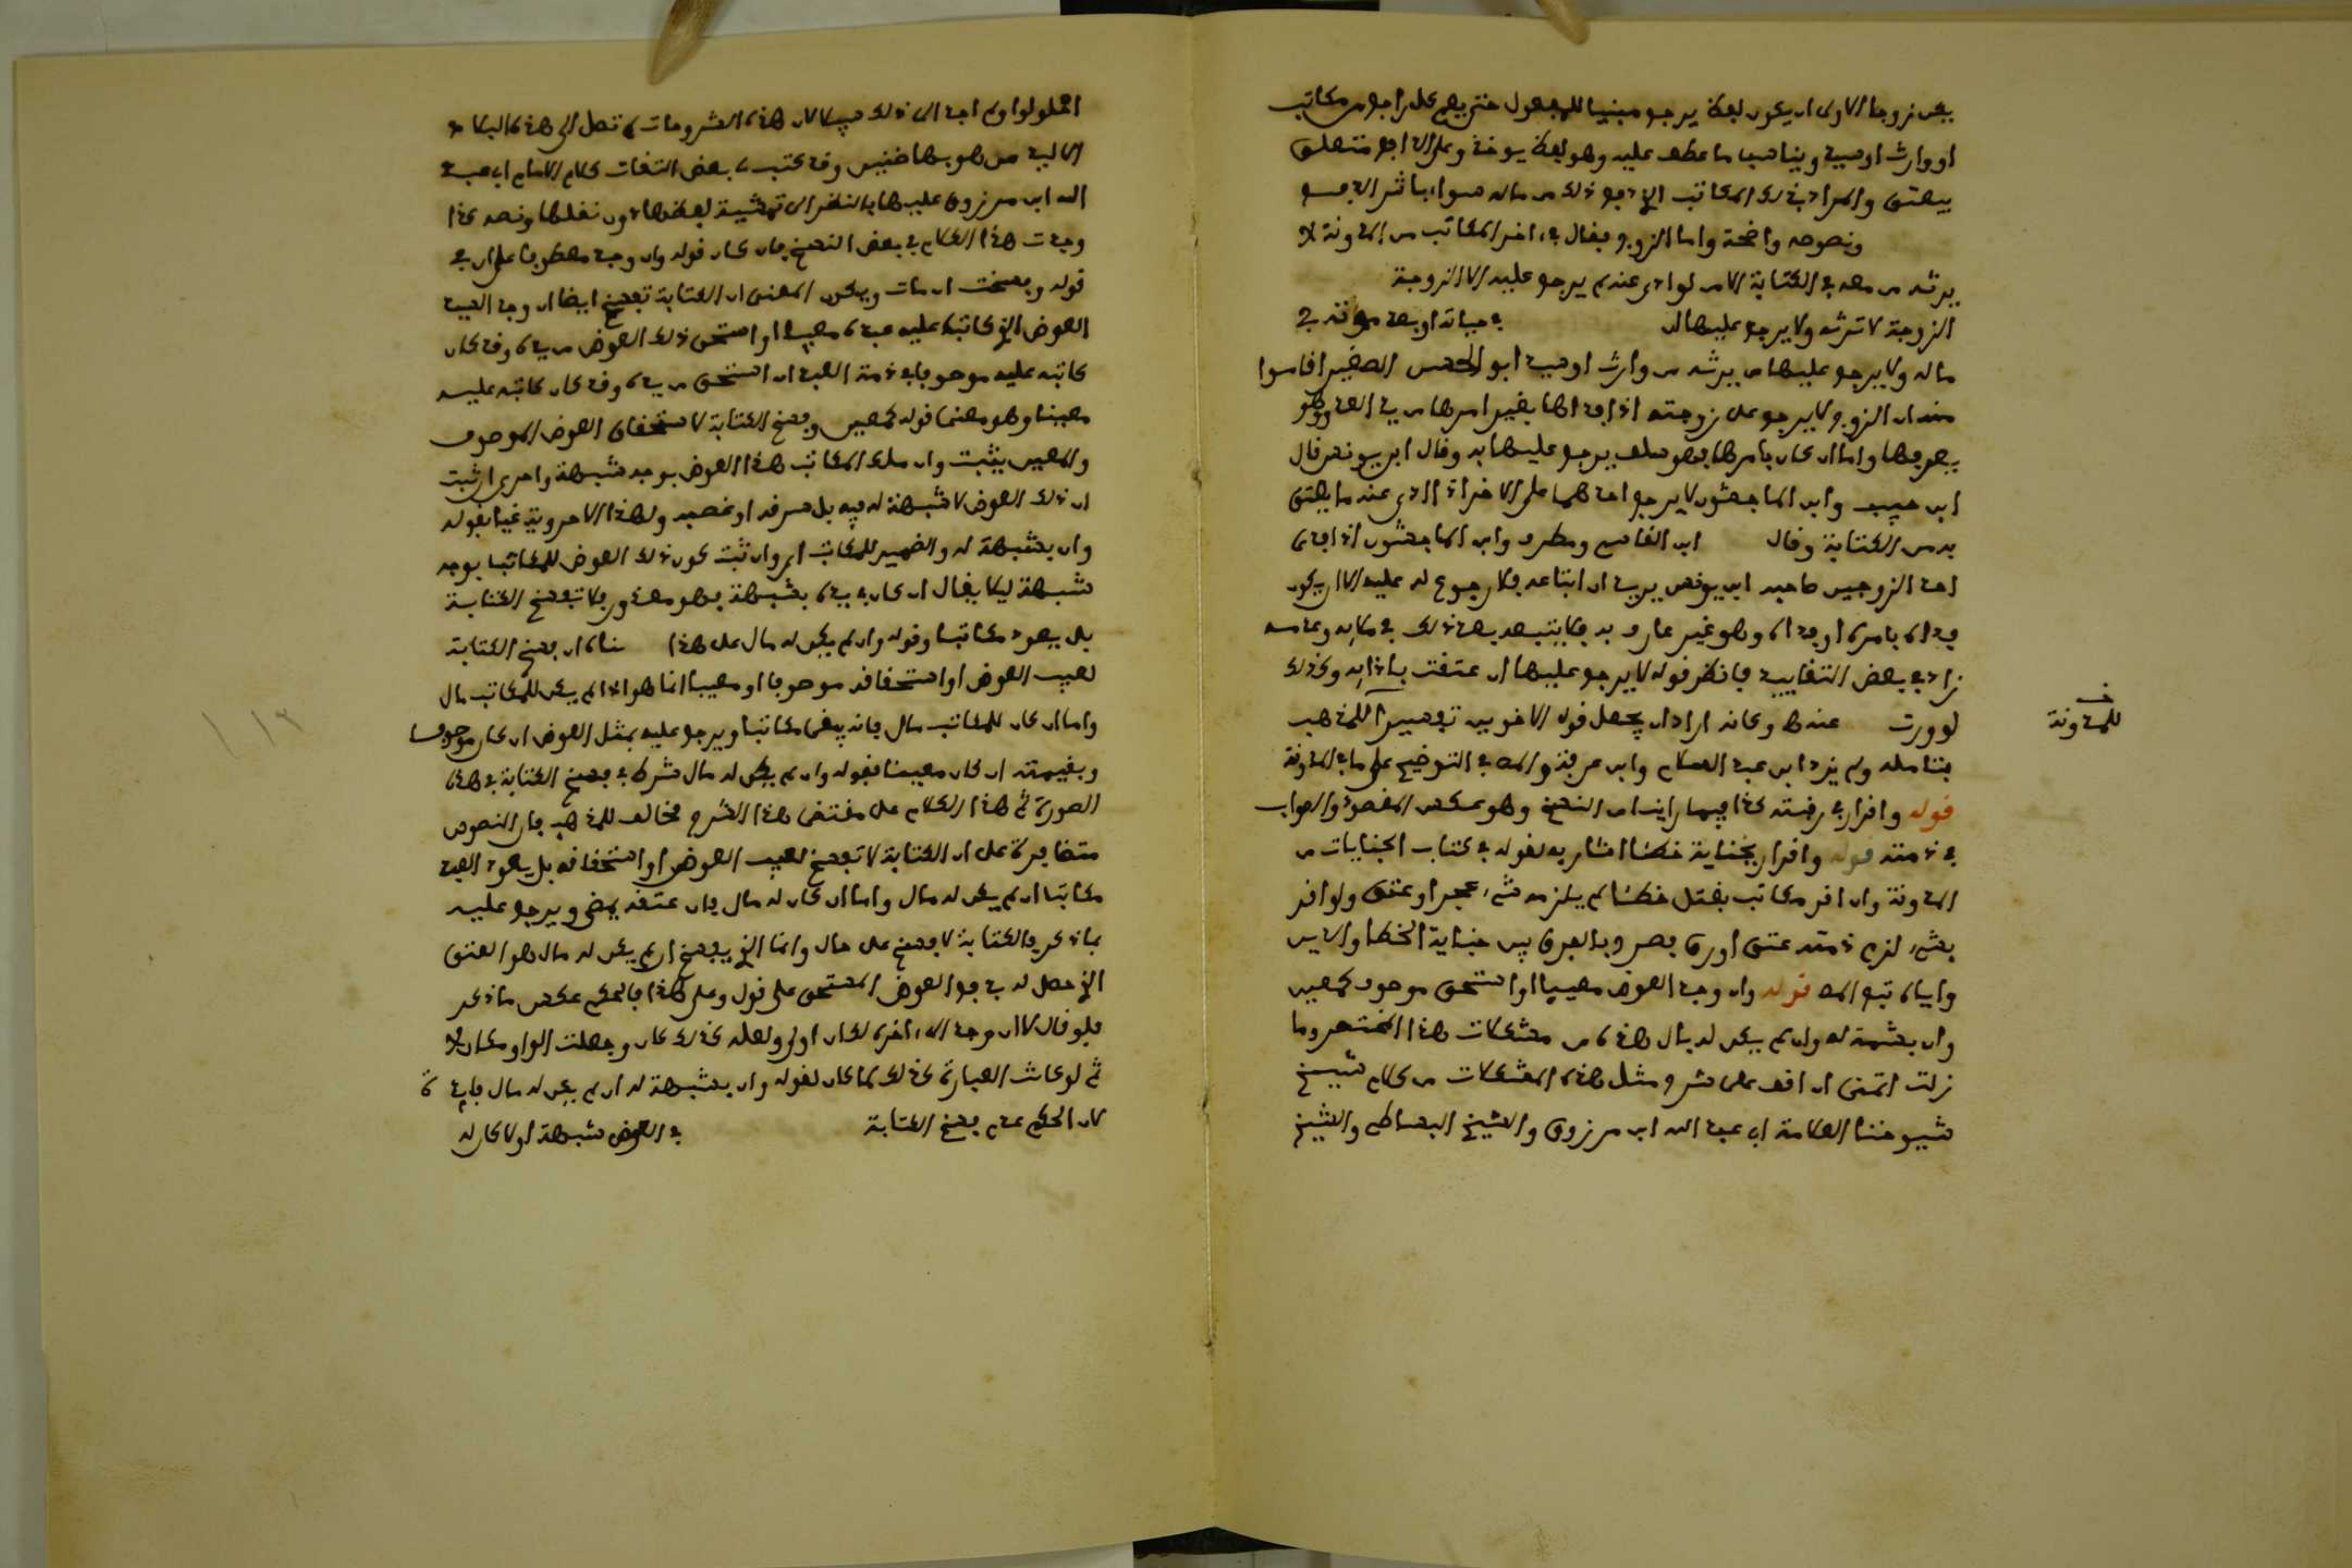 يكن زوجا الاولى ان يكون لفظ يرجع مبنيا للمجهول حتى يعم كل راجع من مكاتب
او وارث او سيد ويناسب ما عطف عليه وهو لفظ يوخذ وعلى الا
يعتق والمراد بذلك المكاتب الا ذلك من ماله سواء باشر الا
ونصوصه واضحة واما الزوج فقال في اخر المكاتب من المدونة لا
يرثه من معه في الكتابة الا من لو ادى عنه لم يرجع عليه الا الزوجة
الزوجة لا ترثه ولا يرجع عليها ان في حياته او بعد موته في
ماله ولا يرجع عليها من يرثه من وارث او سيد ابو الحسن الصغير اقاموا
منه ان الزوج لا يرجع على زوجته اذا فداها بغير امرها من يد العدو وهو
يعرفها واما ان كان بامرها فهو سلف يرجع عليها به وقال ابن يونس قال
ابن حبيب وابن الماجشون لا يرجع احدهما على الاخر اذا ادى عنه ما يعتق
به من الكتابة وقال ابن القاسم ومطرف وابن الماجشون اذا فدى
احد الزوجين صاحبه ابن يونس يريد ان ابتاعه فلا رجوع له عليه الا ان يكون
فداه بامره او فداه وهو غير عارف به فلا يتبعه بعد ذلك في
زاد في بعض التقاييد فانظر قوله لا يرجع عليها ان عتقت وكذلك
لو ورث عنه وكانه اراد ان يجعل قول الاخوين تفسيرا للمذهب
فتامله ولم يزد ابن عبد السلام وابن عرفة والمص في التوضيح على ما في المدونة
خـ للمدونة
قوله واقرار في رقبته كذا فيما راينا من النسخ وهو عكس المقصود والصواب
في ذمته قوله واقرار بجناية خطئا اشار به لقوله في كتاب الجنايات من
المدونة وان اقر مكاتب بقتل خطئا لم يلزمه شيء عجز او عتق ولو اقر
بدين لزم ذمته عتق او رق فصرح بالفرق بين جناية الخطا والدين
واياه تبع المص قوله وان وجد العوض معيبا او استحق موصوف كمعين
وان بشبهة له وان لم يكن له مال هذه من مشكلات هذا المختصر وما
زلت اتمنى ان اقف على شرح مثل هذه المشكلات من كلام شيخ
شيوخنا العلامة ابي عبد الله ابن مرزوق والشيخ البساطي والشيخ
احلولو ولم اجد الى ذلك سبيلا لان هذه الشروحات لم تصل الى هذه البلاد
وقد كتب لي بعض الثقات كلام الامام ابي عبد
الله ابن مرزوق عليها بالنظر الى تمشية لفظها دون نقلها ونصه كذا
وجدت هذا الكلام في بعض النسخ فان كان قوله وان وجد معطوفا على ان في
قوله وفسخت ان مات ويكون المعنى ان الكتابة تفسخ ايضا ان وجد السيد
العوض الذي كاتبه عليه عبده معيبا او استحق ذلك العوض من يده وقد كان
كاتبه عليه موصوفا في ذمة العبد ان استحق من يده وقد كان كاتبه عليه
معينا وهو معنى قوله كمعين وفسخ الكتابة لاستحقاق العوض الموصوف
والمعين يثبت وان ملك المكاتب هذا العوض بوجه شبهة واحرى ان ثبت
ان ذلك العوض لا شبهة له فيه بل سرقه او غصبه ولهذا الاحروية غيا بقوله
وان بشبهة له والضمير للمكاتب اي وان ثبت كون ذلك العوض للمكاتب بوجه
شبهة ليلا يقال ان كان في يده بشبهة فهو معذور فلا تفسخ الكتابة
بل يعود مكاتبا وقوله وان لم يكن له مال على هذا ان فسخ الكتابة
لعيب العوض او استحقاقه موصوفا او معينا انما هو اذا لم يكن للمكاتب مال
واما ان كان للمكاتب مال فانه يبقى مكاتبا ويرجع عليه بمثل العوض ان كان موصوفا
وبقيمته ان كان معينا فقوله وان لم يكن له مال شرط في فسخ الكتابة في هذه
الصورة ثم هذا الكلام على مقتضى هذا الشرح مخالف للمذهب فان النصوص
متضافرة على ان الكتابة لا تفسخ لعيب العوض او استحقاقه بل يعود العبد
مكاتبا ان لم يكن له مال واما ان كان له مال فان عتقه يمضي ويرجع عليه
بما ذكر فالكتابة لا تفسخ على حال وانما الذي يفسخ ان لم يكن له مال هو العتق
الذي حصل له بدفع العوض المستحق على قول وعلى هذا فالحكم عكس ما ذكر
فلو قال لا ان وجد الى اخره لكان اولى ولعله كذلك كان وجعلت الواو مكان لا
ثم لو كانت العبارة كذلك لما كان لقوله وان بشبهة له ان لم يكن له مال فايدة
لان الحكم عدم فسخ الكتابة في العوض شبهة او لا كان له
١١٢